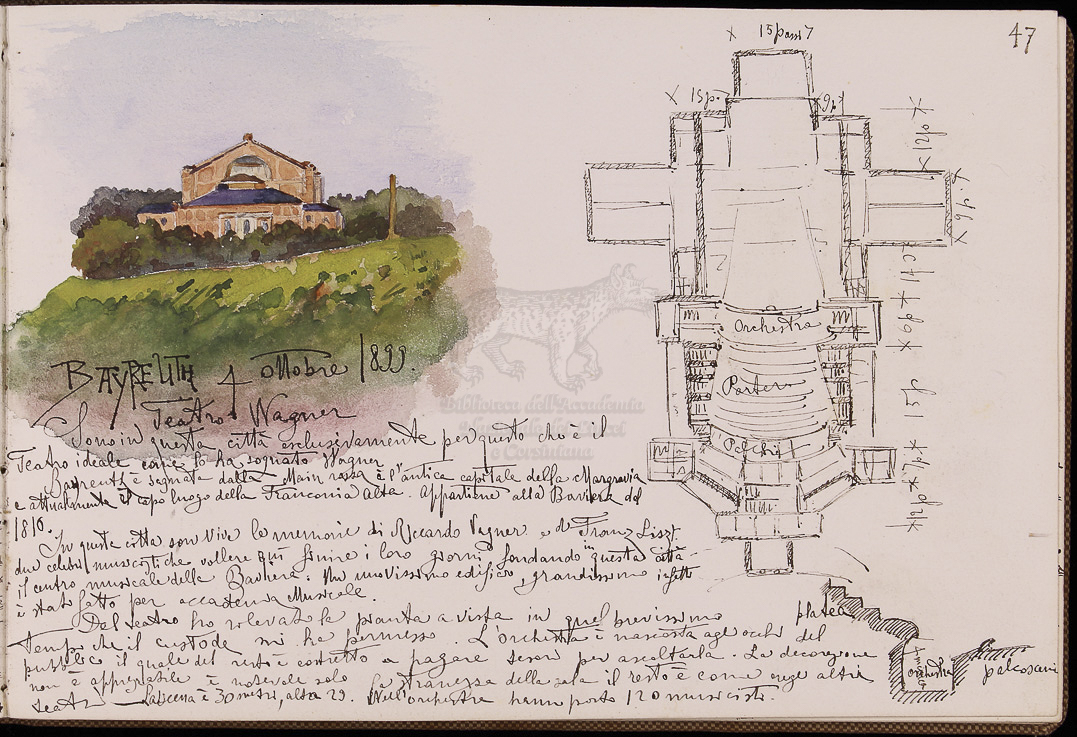 47
15 passi 7
15 p.
6 p.
12 p.
6 p.
7
10 p.
6 p.
15 p.
4 p.
12 p.
Orchestra
Platea
Palchi
BAYREUTH 4 Ottobre 1899.
Teatro Wagner
Sono in questa città esclusivamente per questo che è il
Teatro ideale come lo ha sognato Wagner
Bayreuth è segnata dalla Main rossa è l'antica capitale della Margravia
e attualmente il capo luogo della Franconia Alta. Appartiene alla Baviera dal
1810.
In questa citta son vive le memorie di Riccardo Vagner e di Franz Liszt
due celebri musicisti che vollero qui finire i loro giorni fondando in questa città
il centro musicale della Baviera. Un nuovissimo edificio, grandissimo infatti
è stato fatto per accademia Musicale.
Del teatro ho rilevato la pianta a vista in quel brevissimo
tempo che il custode mi ha permesso. L'orchestra è nascosta agli occhi del
pubblico il quale del resto è costretto a pagare tesori per ascoltarla. La decorazione
non è apprezzabile è notevole solo la stranezza della sala il resto è come negli altri
teatri La scena è 30 metri, alta 29. Nell'orchestra hanno posto 120 musicisti.
platea
orchestra
palcoscenico
Biblioteca dell'Accademia
Nazionale dei Lincei
e Corsiniana